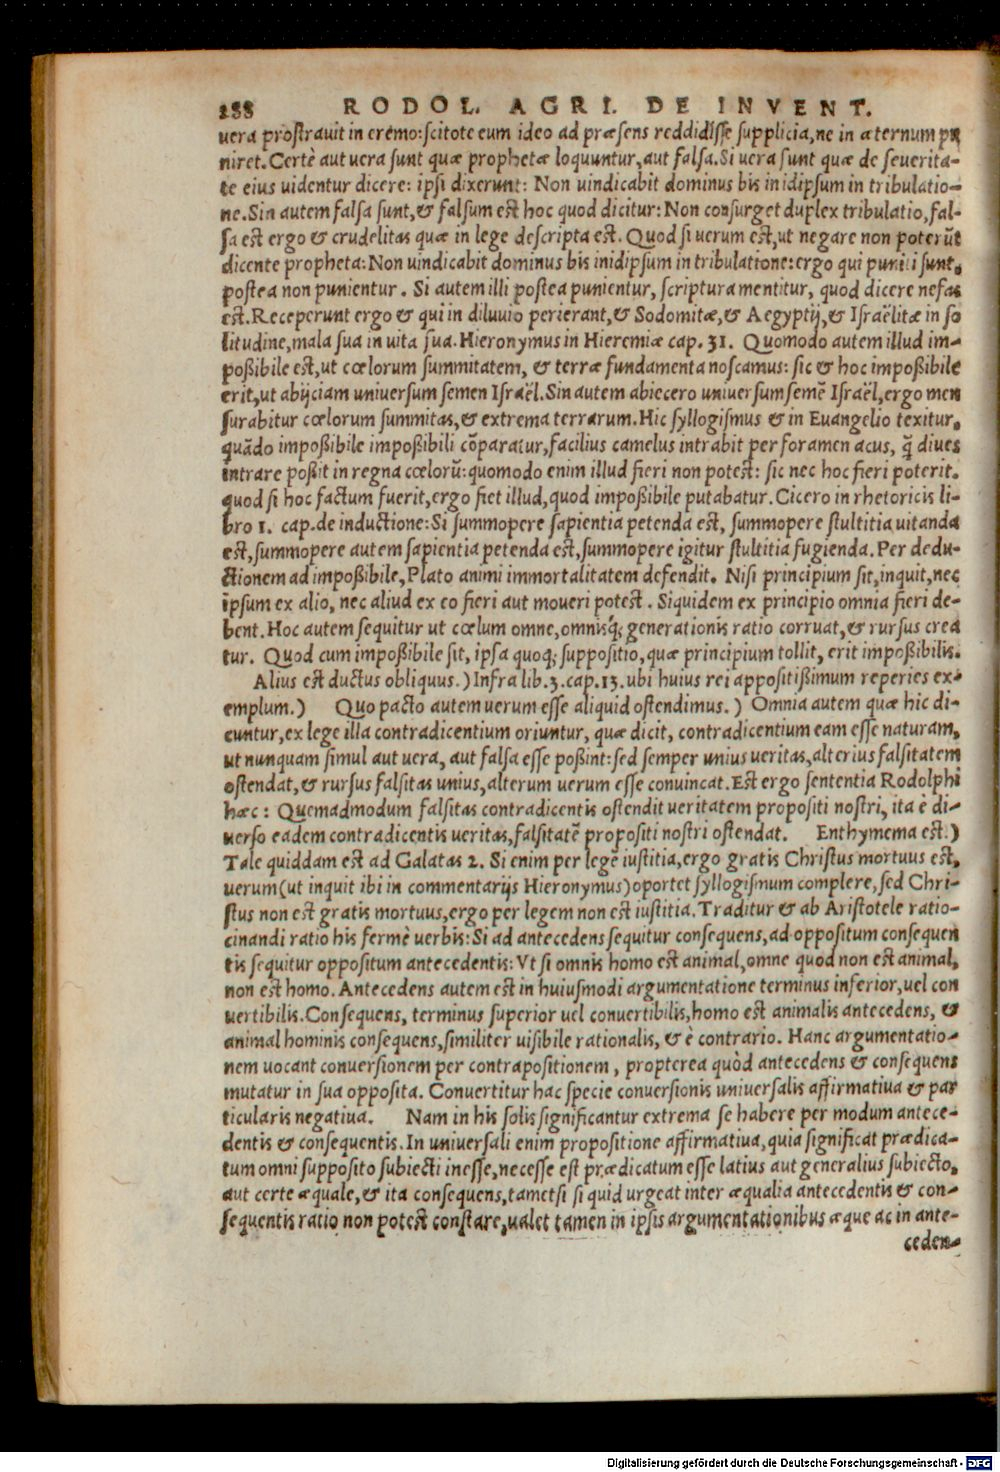 288 RODOL. AGRI. DE INVENT.
uera prostrauit in erémo: scitote eum ideo ad præsens reddidisse supplicia, ne in æternum pu
niret. Certè aut uera sunt quæ prophetæ loquuntur, aut falsa. Si uera sunt quæ de seuerita-
te eius uidentur dicere: ipsi dixerunt: Non uindicabit dominus bis in idipsum in tribulatio-
ne. Sin autem falsa sunt, & falsum est hoc quod dicitur: Non consurget duplex tribulatio, fal-
sa est ergo & crudelitas quæ in lege descripta est. Quod si uerum est, ut negare non poterũt
dicente propheta: Non uindicabit dominus bis inidipsum in tribulatione: ergo qui puniti sunt,
postea non punientur. Si autem illi postea punientur, scriptura mentitur, quod dicere nefas
est. Receperunt ergo & qui in diluuio perierant, & Sodomitæ, & Aegyptij, & Israëlitæ in so
litudine, mala sua in uita sua. Hieronymus in Hieremiæ cap. 31. Quomodo autem illud im-
poßibile est, ut cœlorum summitatem, & terræ fundamenta noscamus: sic & hoc impoßibile
erit, ut abijciam uniuersum semen Israël. Sin autem abiecero uniuersum semẽ Israël, ergo men
surabitur cœlorum summitas, & extrema terrarum. Hic syllogismus & in Euangelio texitur,
quãdo impoßibile impoßibili cõparatur, facilius camelus intrabit per foramen acus, q̃ diues
intrare poßit in regna cœlorũ: quomodo enim illud fieri non potest: sic nec hoc fieri poterit.
quod si hoc factum fuerit, ergo fiet illud, quod impoßibile putabatur. Cicero in rhetoricis li-
bro 1. cap. de inductione: Si summopere sapientia petenda est, summopere stultitia uitanda
est, summopere autem sapientia petenda est, summopere igitur stultitia fugienda. Per dedu-
ctionem ad impoßibile, Plato animi immortalitatem defendit. Nisi principium sit, inquit, nec
ipsum ex alio, nec aliud ex eo fieri aut moueri potest. Siquidem ex principio omnia fieri de-
bent. Hoc autem sequitur ut cœlum omne, omnisq́; generationis ratio corruat, & rursus crea
tur. Quod cum impoßibile sit, ipsa quoq; suppositio, quæ principium tollit, erit impoßibilis.
Alius est ductus obliquus.) Infra lib. 3. cap. 13. ubi huius rei appositißimum reperies ex-
emplum.) Quo pacto autem uerum esse aliquid ostendimus.) Omnia autem quæ hic di-
cuntur, ex lege illa contradicentium oriuntur, quæ dicit, contradicentium eam esse naturam,
ut nunquam simul aut uera, aut falsa esse poßint: sed semper unius ueritas, alterius falsitatem
ostendat, & rursus falsitas unius, alterum uerum esse conuincat. Est ergo sententia Rodolphi
hæc: Quemadmodum falsitas contradicentis ostendit ueritatem propositi nostri, ita è di-
uerso eadem contradicentis ueritas, falsitatẽ propositi nostri ostendat. Enthymema est.)
Tale quiddam est ad Galatas 2. Si enim per legẽ iustitia, ergo gratis Christus mortuus est,
uerum (ut inquit ibi in commentarijs Hieronymus) oportet syllogismum complere, sed Chri-
stus non est gratis mortuus, ergo per legem non est iustitia. Traditur & ab Aristotele ratio-
cinandi ratio his fermè uerbis: Si ad antecedens sequitur consequens, ad oppositum consequen
tis sequitur oppositum antecedentis: Vt si omnis homo est animal, omne quod non est animal,
non est homo. Antecedens autem est in huiusmodi argumentatione terminus inferior, uel con
uertibilis. Consequens, terminus superior uel conuertibilis, homo est animalis antecedens, &
animal hominis consequens, similiter uisibile rationalis, & è contrario. Hanc argumentatio-
nem uocant conuersionem per contrapositionem, propterea quòd antecedens & consequens
mutatur in sua opposita. Conuertitur hac specie conuersionis uniuersalis affirmatiua & par
ticularis negatiua. Nam in his solis significantur extrema se habere per modum antece-
dentis & consequentis. In uniuersali enim propositione affirmatiua, quia significat prædica-
tum omni supposito subiecti inesse, necesse est prædicatum esse latius aut generalius subiecto,
aut certe æquale, & ita consequens, tametsi si quid urgeat inter æqualia antecedentis & con-
sequentis ratio non potest constare, ualet tamen in ipsis argumentationibus æque ac in ante-
ceden-
Digitalisierung gefördert durch die Deutsche Forschungsgemeinschaft - DFG